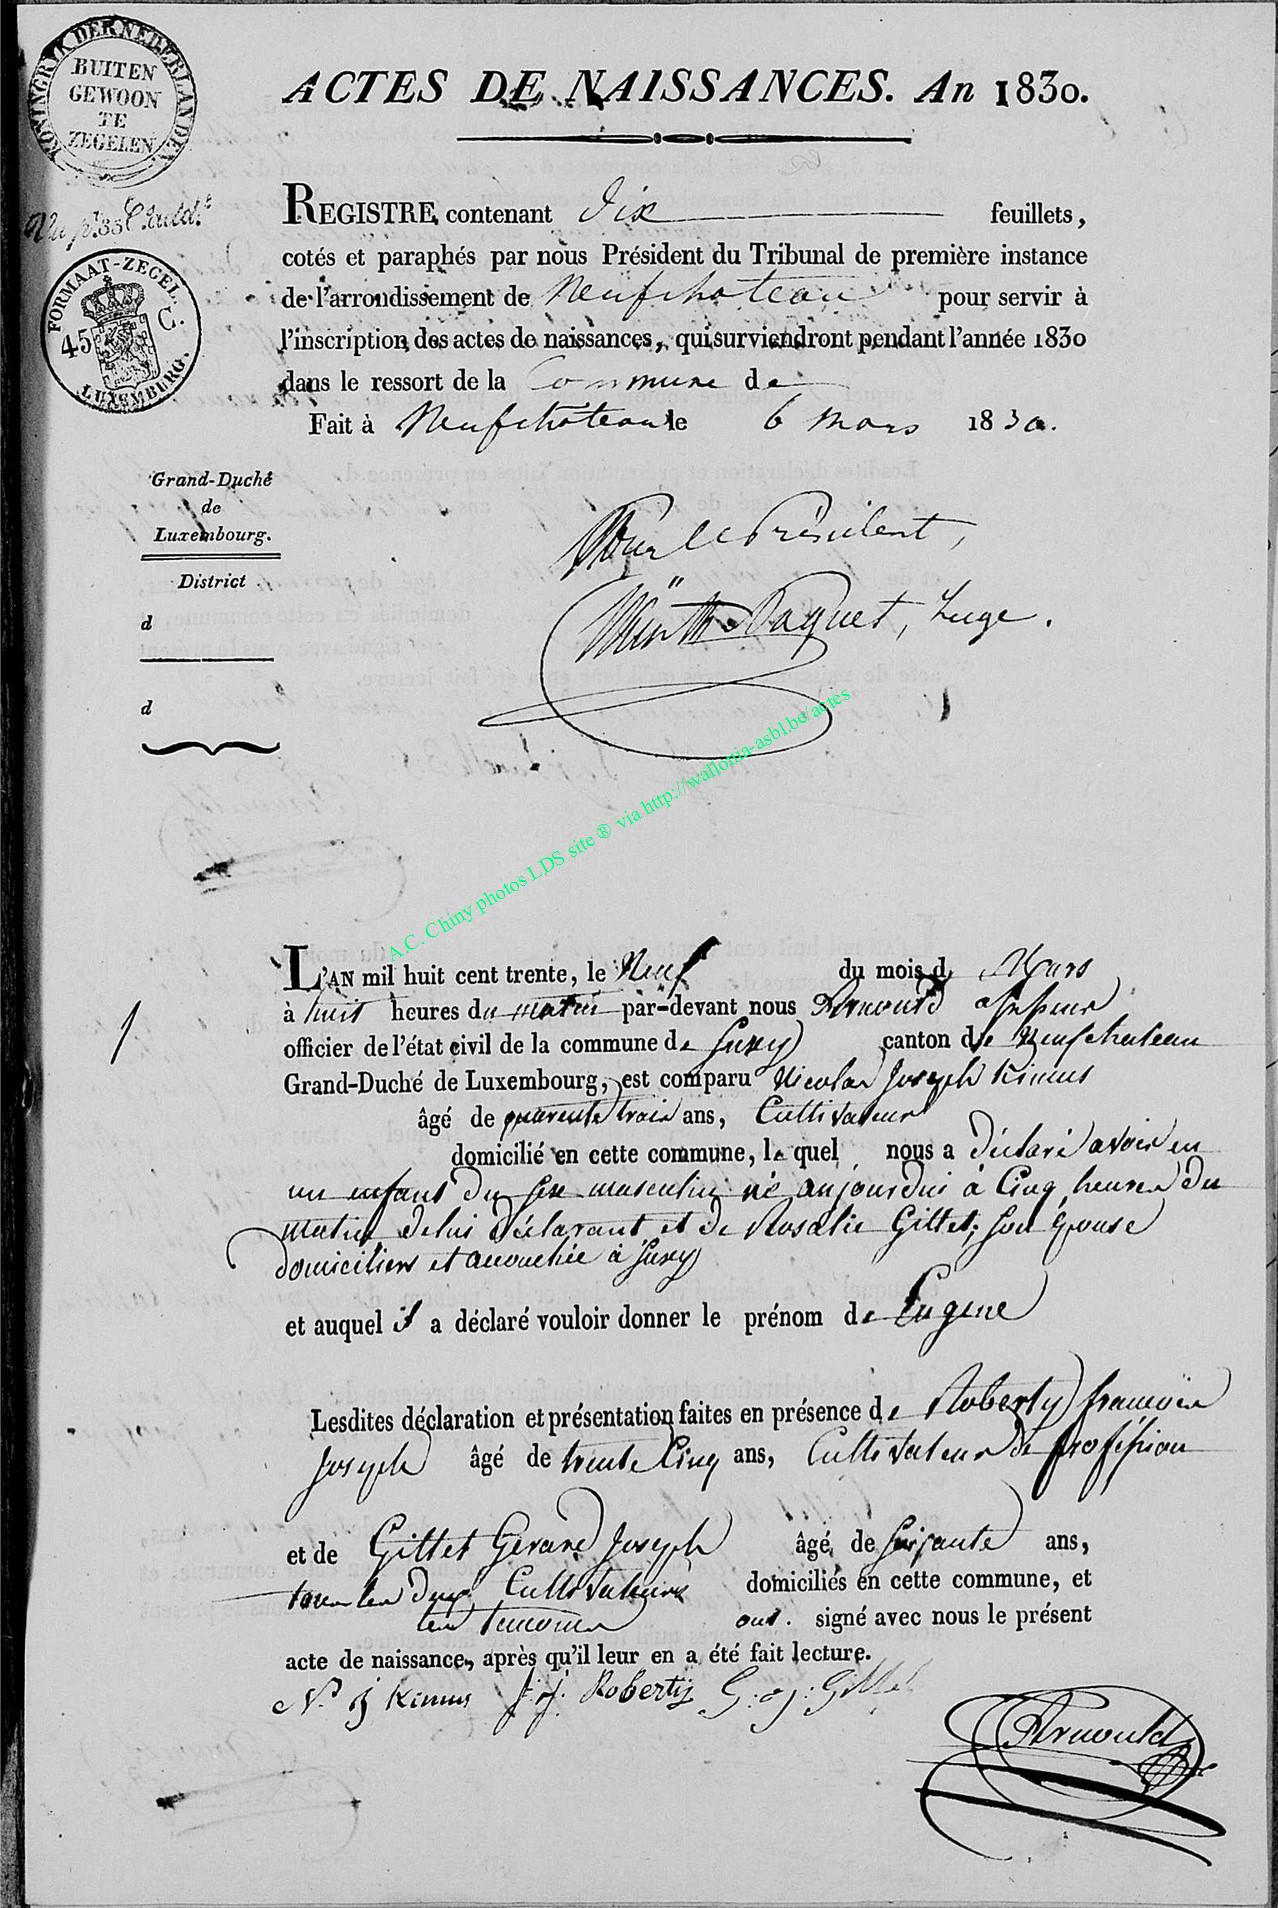 KONINGRYK DER NEDERLANDEN
BUITEN
GEWOON
TE
ZEGELEN
ACTES DE NAISSANCES. An 1830.
REGISTRE contenant dix feuillets,
cotés et paraphés par nous Président du Tribunal de première instance
de l'arrondissement de Neufchateau pour servir à
l'inscription des actes de naissances, qui surviendront pendant l'année 1830
dans le ressort de la Commune de
Fait à Neufchateau le 6 mars 1830.
FORMAAT-ZEGEL.
45 C.
LUXEMBURG.
Grand-Duché
de
Luxembourg.
District
d
d
Pour le Président,
Paquet, Juge.
A.C. Chiny photos LDS site ® via http://wallonia-asbl.be/actes
1
L'AN mil huit cent trente, le Neuf du mois de Mars
à huit heures du matin par-devant nous Arnould assesseur
officier de l'état civil de la commune de Suxy canton de Neufchateau
Grand-Duché de Luxembourg, est comparu Nicolas Joseph Kimus
âgé de quarente trois ans, Cultivateur
domicilié en cette commune, lequel nous a déclaré avoir eu
un enfant du sexe masculin né aujourdui à Cinq heures du
matin de lui déclarant et de Rosalie Gillet, son épouse
domiciliers et accouchée à Suxy
et auquel il a déclaré vouloir donner le prénom de Eugene
Lesdites déclaration et présentation faites en présence de Roberty francois
Joseph âgé de trente Cinq ans, Cultivateur de profession
et de Gillet Gerard Joseph âgé de soisante ans,
tous les deux Cultivateurs domiciliés en cette commune, et
les temoins ont signé avec nous le présent
acte de naissance, après qu'il leur en a été fait lecture.
N. j Kimus f: j: Roberty G: j: Gillet
Arnould